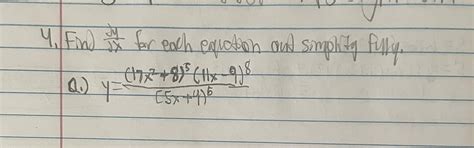 4. Find dy/dx for each equation and simplify fully.
a.) y = (17x² + 8)⁵ (11x - 9)⁸ / (5x + 4)⁶